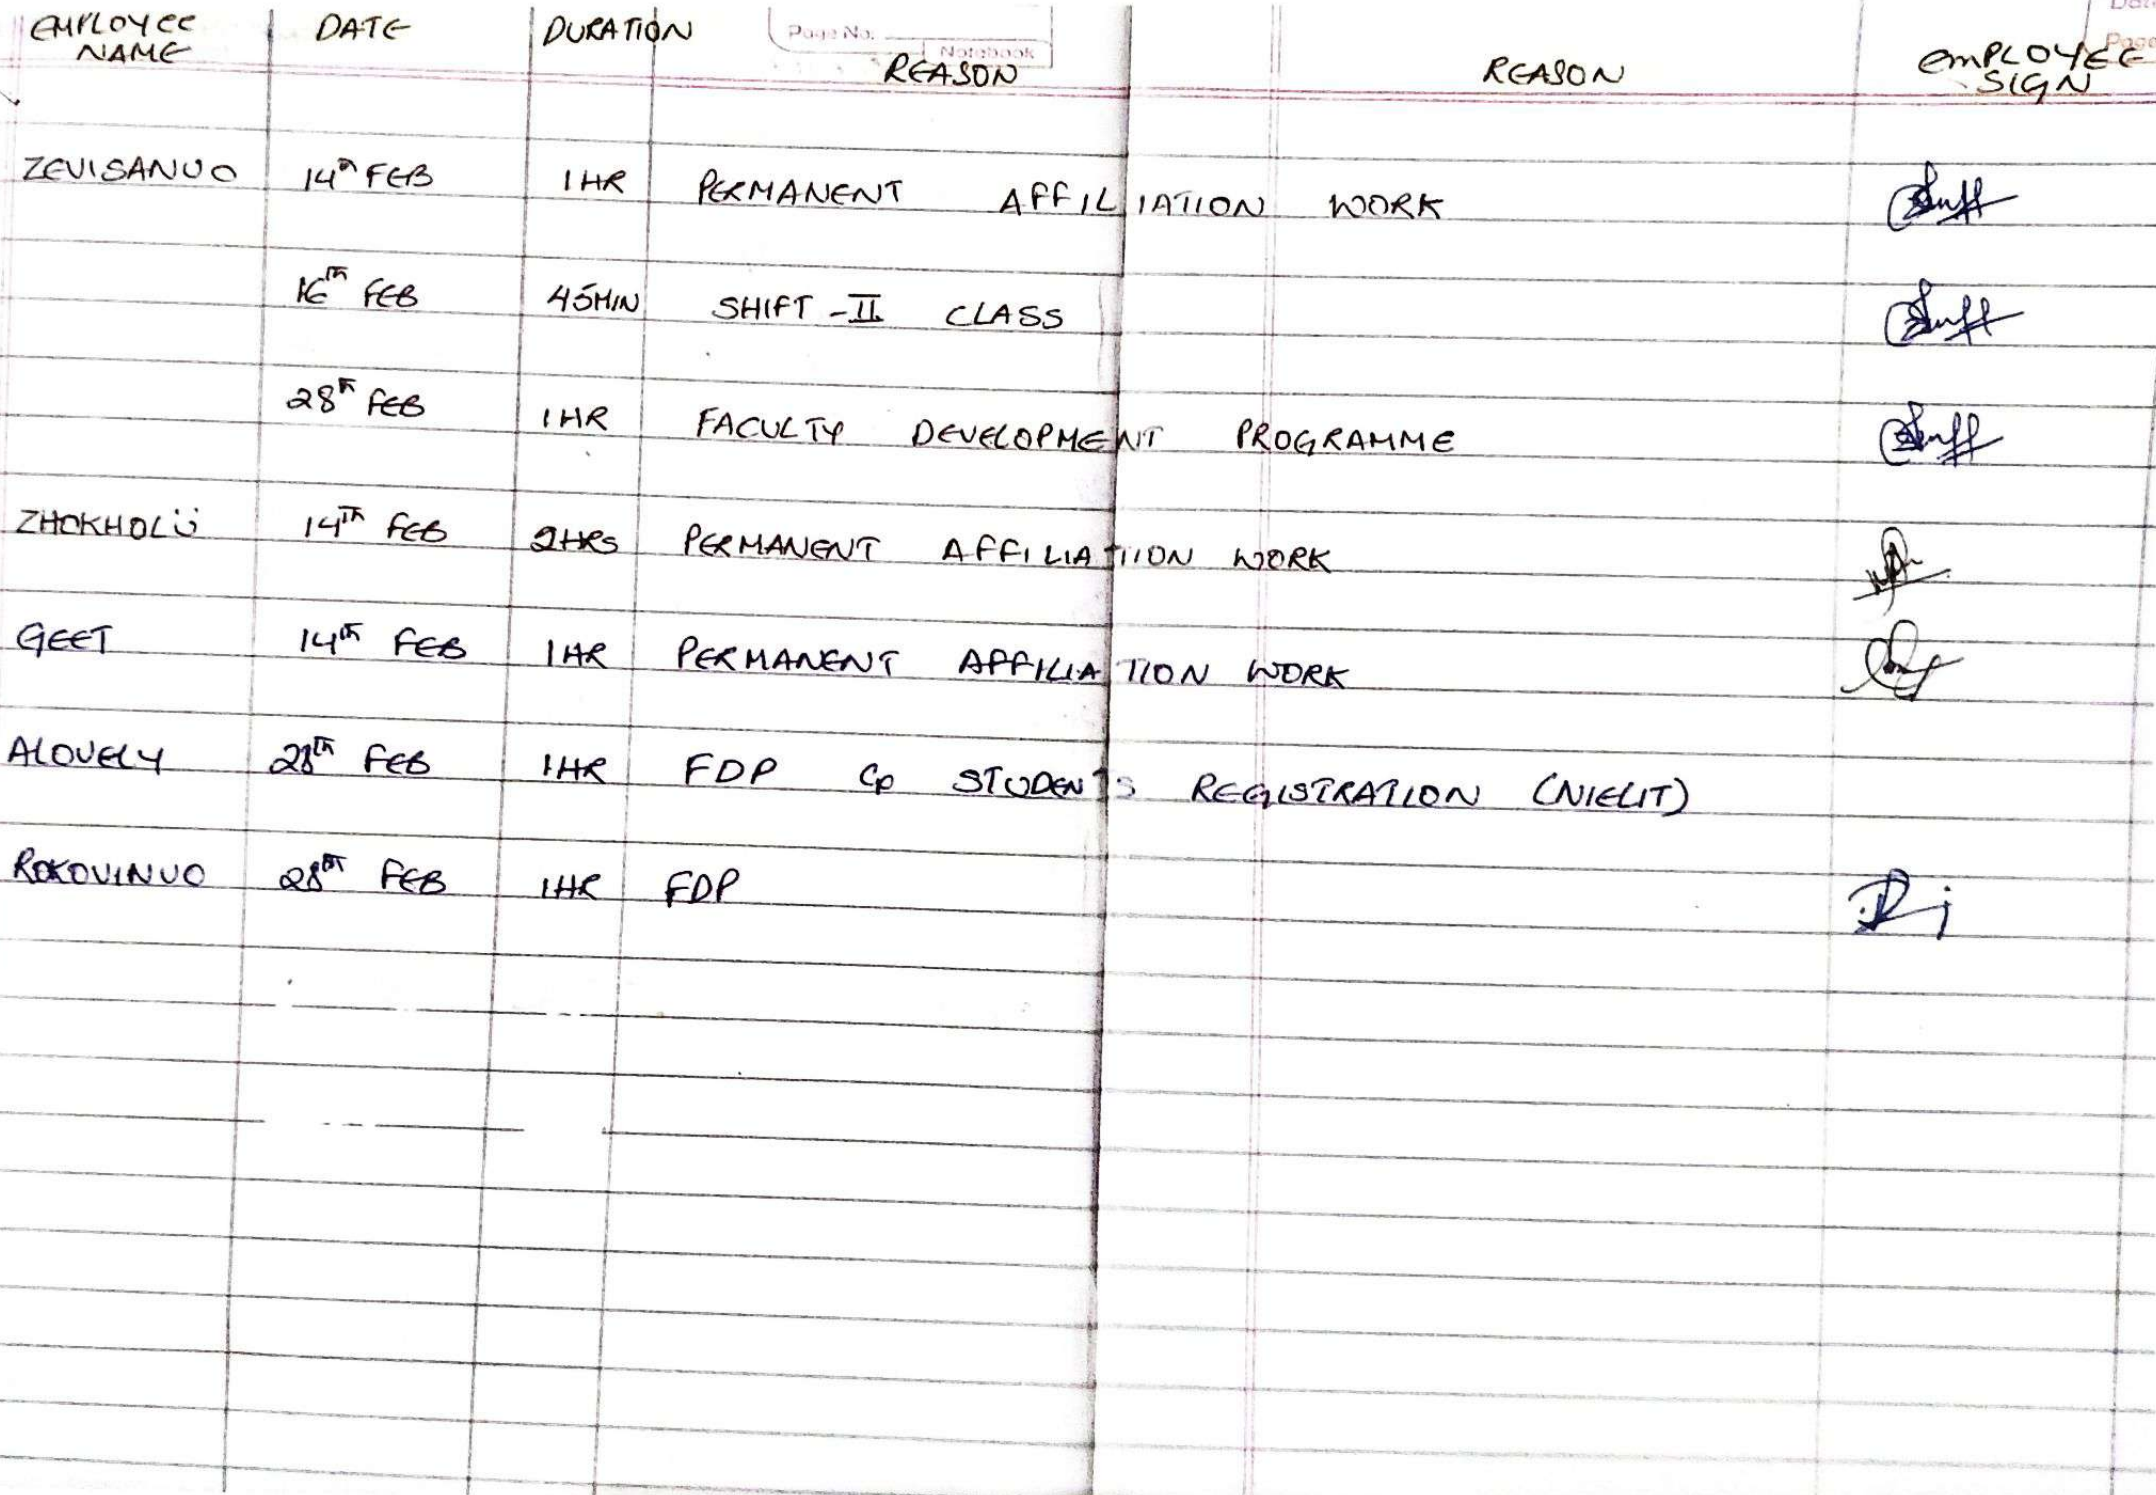 EMPLOYEE NAME DATE DURATION REASON REASON EMPLOYEE SIGN
Page No.
Notebook
ZEVISANUO 14th FEB 1HR PERMANENT AFFILIATION WORK
16th FEB 45MIN SHIFT-II CLASS
28th FEB 1HR FACULTY DEVELOPMENT PROGRAMME
ZHOKHOLÜ 14TH FEB 2HRS PERMANENT AFFILIATION WORK
GEET 14th FEB 1HR PERMANENT AFFILIATION WORK
ALOVELY 28th FEB 1HR FDP & STUDENTS REGISTRATION (NIELIT)
ROKOVINUO 28th FEB 1HR FDP